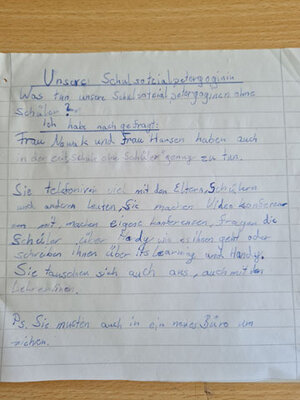 Unsere Schulsotzialpetergoginen
Was tun unsere Schulsotzialpetergoginen ohne
Schüler?
Ich habe nachgefragt:
Frau Nowak und Frau Hansen haben auch
in der Schule ohne Schüler genug zu tun.
Sie telefoniren viel mit den Eltern, Schülern
und andern leuten, Sie machen Video konferenz
en mit, machen eigene konferenzen, fragen die
Schüler über Hady wie es ihnen geht oder
schreiben ihnen über its learning und Handy.
Sie tauschen sich auch aus, auch mit den
Lehrerinnen.
Ps. Sie musten auch in ein neues Büro um
ziehen.